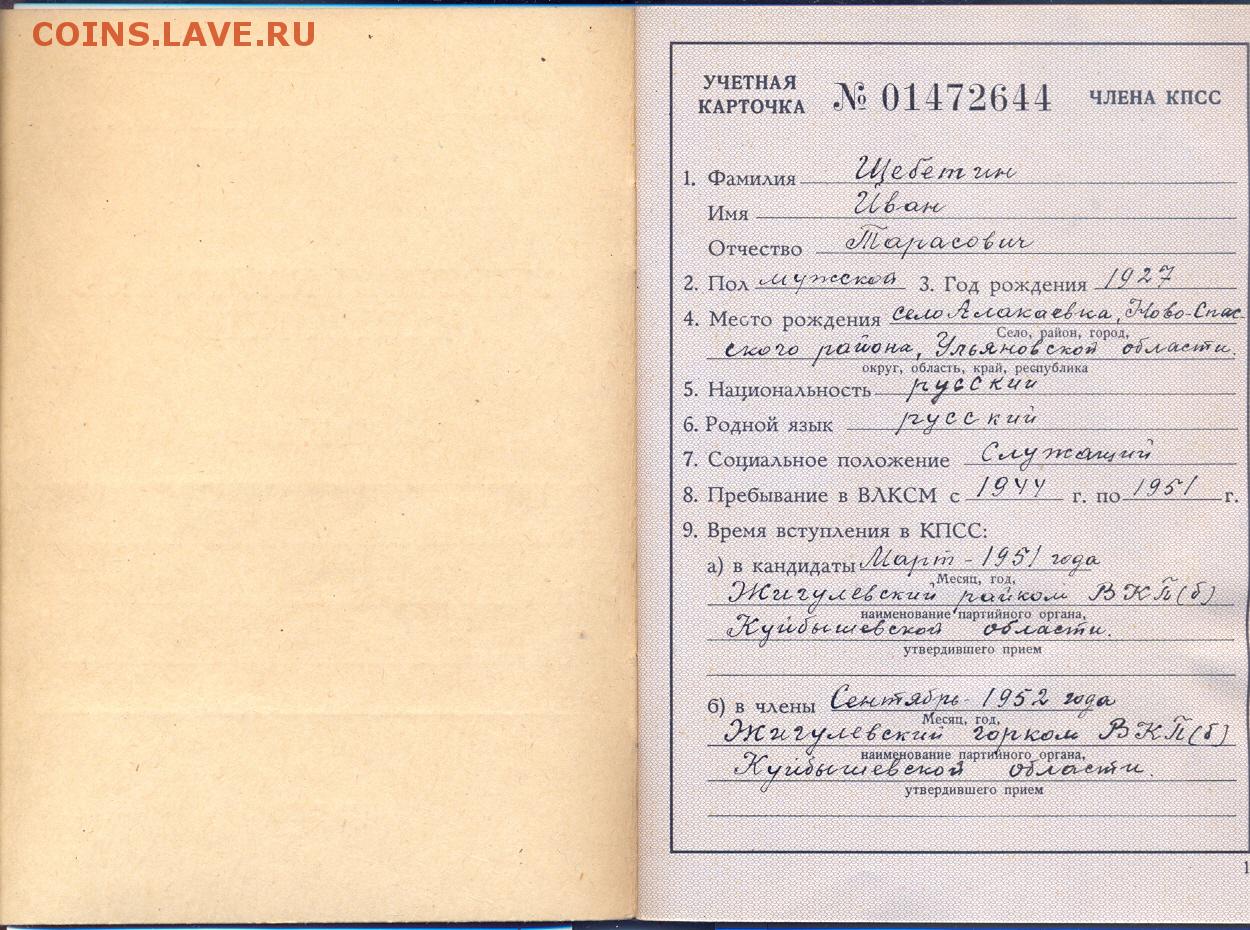 COINS.LAVE.RU
УЧЕТНАЯ КАРТОЧКА № 01472644 ЧЛЕНА КПСС
1. Фамилия Щебетин
Имя Иван
Отчество Тарасович
2. Пол мужской 3. Год рождения 1927
4. Место рождения село Алакаевка, Ново-Спас-
Село, район, город,
ского района, Ульяновской области.
округ, область, край, республика
5. Национальность русский
6. Родной язык русский
7. Социальное положение Служащий
8. Пребывание в ВЛКСМ с 1944 г. по 1951 г.
9. Время вступления в КПСС:
а) в кандидаты Март - 1951 года
Месяц, год,
Жигулевский райком ВКП(б)
наименование партийного органа,
Куйбышевской области.
утвердившего прием
б) в члены Сентябрь - 1952 года
Месяц, год,
Жигулевский горком ВКП(б)
наименование партийного органа,
Куйбышевской области.
утвердившего прием
1